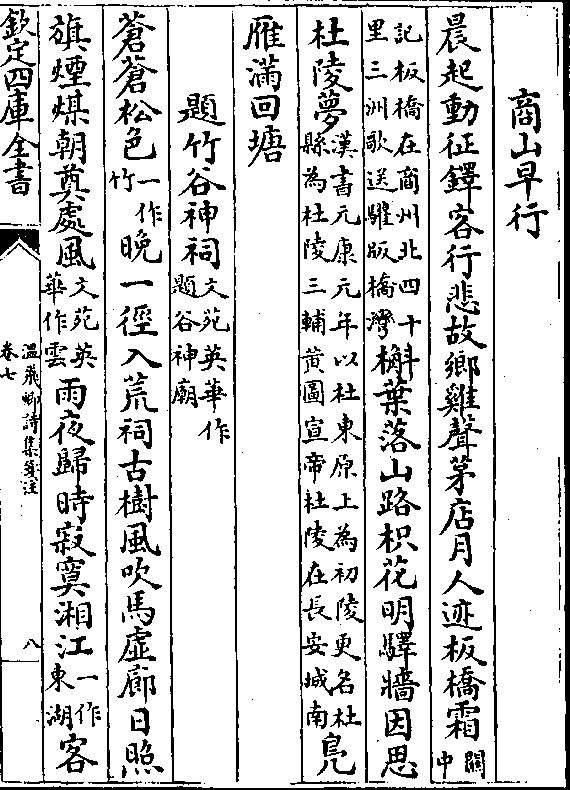 商山早行
晨起動征鐸客行悲故鄉雞聲茅店月人迹板橋霜關中
記板橋在商州北四十里三洲歌送驩版橋灣槲葉落山路枳花明驛牆因思
杜陵夢漢書元康元年以杜東原上為初陵更名杜縣為杜陵三輔黄圖宣帝杜陵在長安城南鳬
雁滿回塘
題竹谷神祠文苑英華作題谷神廟
蒼蒼松色一作竹晚一徑入荒祠古樹風吹馬虛廊日照
旗煙煤朝奠處風文苑英華作雲雨夜歸時寂寞湘江一作東湖客
欽定四庫全書
溫飛卿詩集箋注
卷七
八